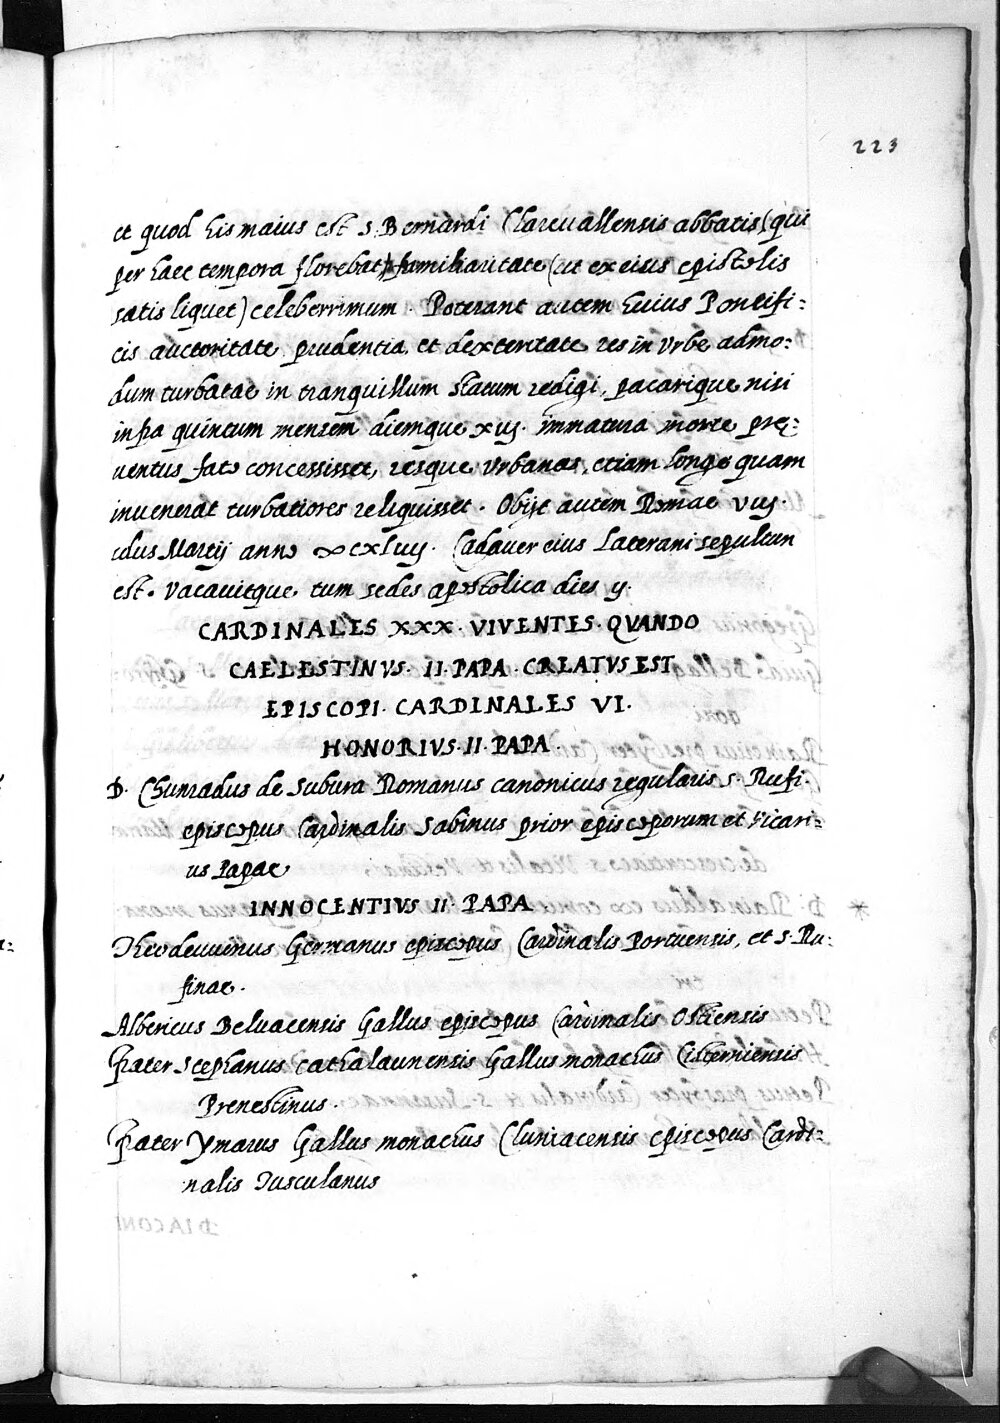 223
et quod his maius est s. Bernardi Clareuallensis abbatis (qui
per haec tempora florebat) familiaritate (ut ex eius epistolis
satis liquet) celeberrimum. Poterant autem huius Pontifi:
cis auctoritate prudentia, et dexteritate res in Vrbe admo:
dum turbatae in tranquillum statum redigi, pacarique nisi
infra quintum mensem diemque xiij. immatura morte prę:
uentus fato concessisset, resque Vrbanas, etiam longe quam
inuenerat turbatiores reliquisset. Obijt autem Romae viij
idus Martij anno ∞cxliiij. Cadauer eius Laterani sepultum
est. Vacauitque tum sedes apostolica dies ij.
CARDINALES XXX. VIVENTES. QVANDO
CAELESTINVS. II. PAPA. CREATVS EST
EPISCOPI. CARDINALES VI.
HONORIVS. II. PAPA.
D. Chunradus de Subura Romanus canonicus regularis s. Rufi.
episcopus Cardinalis Sabinus prior episcoporum et Vicari:
us Papae
INNOCENTIVS II. PAPA
Theodeuuinus Germanus episcopus Cardinalis Portuensis, et s. Ru:
finae.
Albericus Beluacensis Gallus episcopus Cardinalis Ostiensis
Frater Stephanus Cathalaunensis Gallus monachus Cisterniensis
Prenestinus.
Frater Ymarus Gallus monachus Cluniacensis episcopus Cardi:
nalis Tusculanus